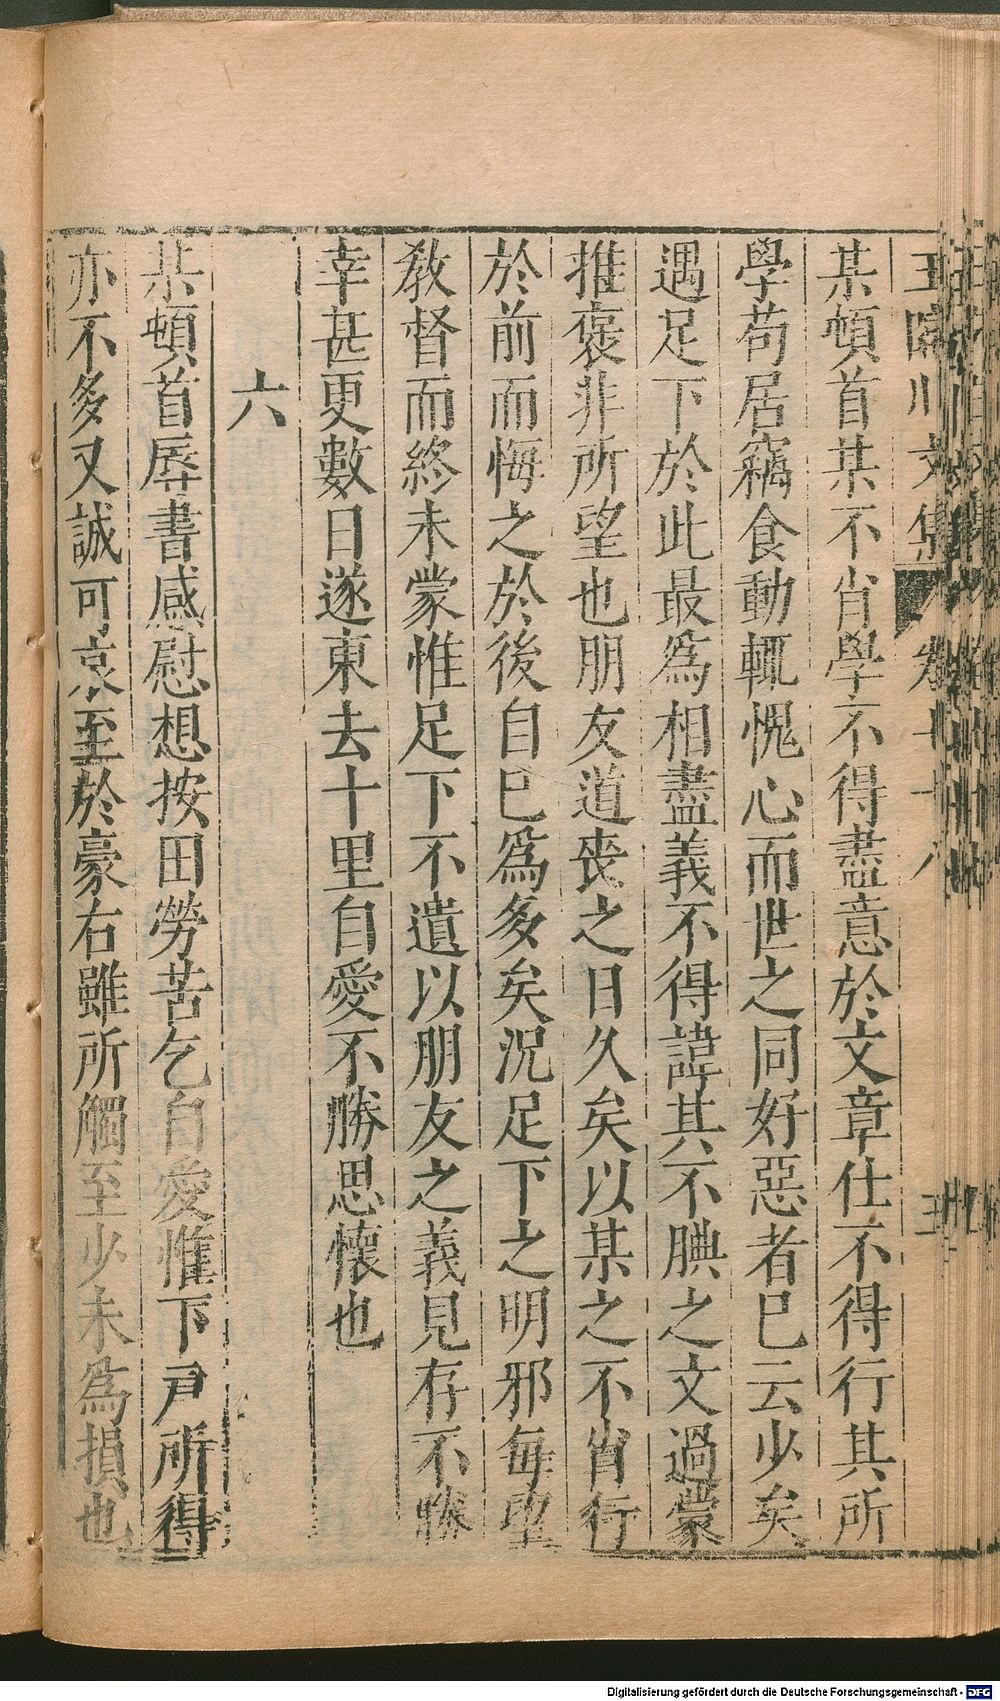 某頓首某不肖學不得盡意於文章仕不得行其所
學苟居竊食動輒愧心而世之同好惡者巳云少矣
遇足下於此最爲相盡義不得諱其不腆之文過蒙
推褒非所望也朋友道喪之日久矣以某之不肖行
於前而悔之於後自巳爲多矣況足下之明邪每望
敎督而終未蒙惟足下不遺以朋友之義見存不勝
幸甚更數日遂東去十里自愛不勝思懷也
六
某頓首辱書感慰想按田勞苦乞自愛惟下戸所得
亦不多又誠可哀至於豪右雖所觸至少未爲損也
Digitalisierung gefördert durch die Deutsche Forschungsgemeinschaft - DFG